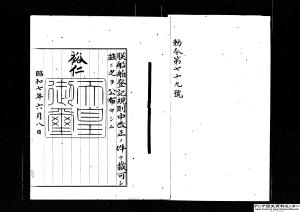 勅令第七十九號
朕船舶登記規則中改正ノ件ヲ裁可シ
茲ニ之ヲ公布セシム
裕仁
天皇御璽
昭和七年六月八日
アジア歴史資料センター